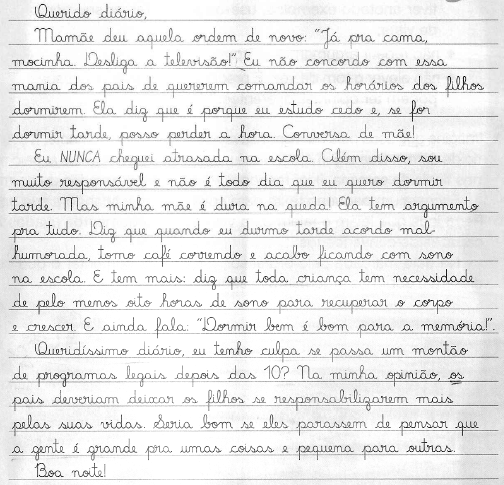 Querido diário,
Mamãe deu aquela ordem de novo: "Já pra cama,
mocinha. Desliga a televisão!" Eu não concordo com essa
mania dos pais de quererem comandar os horários dos filhos
dormirem. Ela diz que é porque eu estudo cedo e, se for
dormir tarde, posso perder a hora. Conversa de mãe!
Eu NUNCA cheguei atrasada na escola. Além disso, sou
muito responsável e não é todo dia que eu quero dormir
tarde. Mas minha mãe é dura na queda! Ela tem argumento
pra tudo. Diz que quando eu durmo tarde acordo mal-
humorada, tomo café correndo e acabo ficando com sono
na escola. E tem mais: diz que toda criança tem necessidade
de pelo menos oito horas de sono para recuperar o corpo
e crescer. E ainda fala: "Dormir bem é bom para a memória!".
Queridíssimo diário, eu tenho culpa se passa um montão
de programas legais depois das 10? Na minha opinião, os
pais deveriam deixar os filhos se responsabilizarem mais
pelas suas vidas. Seria bom se eles parassem de pensar que
a gente é grande pra umas coisas e pequena para outras.
Boa noite!